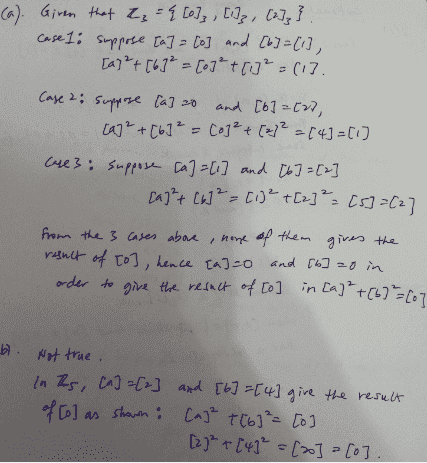 (a). Given that Z₃ = { [0]₃, [1]₃, [2]₃ }.
Case 1: Suppose [a] = [0] and [b] = [1],
[a]² + [b]² = [0]² + [1]² = [1].
Case 2: Suppose [a] = 0 and [b] = [2],
[a]² + [b]² = [0]² + [2]² = [4] = [1]
Case 3: Suppose [a] = [1] and [b] = [2]
[a]² + [b]² = [1]² + [2]² = [5] = [2]
From the 3 cases above, none of them gives the
result of [0], hence [a] = 0 and [b] = 0 in
order to give the result of [0] in [a]² + [b]² = [0]
b). Not true.
In Z₅, [a] = [2] and [b] = [4] give the result
of [0] as shown: [a]² + [b]² = [0]
[2]² + [4]² = [20] = [0].